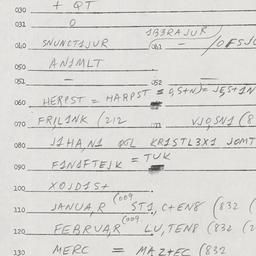 030 + QT
031 O
040 SNUNCT1JUR 1B3RAJUR
041 - /OFSJU
050 AN1MLT
051 - 052 —
060 HERPST = HARPST = 
070 FR,L1NK (212 071 VJQSN1 (8
080 J1HA,N1 KR1STL3X1 JOMT
090 F1N1FTEJK = TUK
100 X0JD1S+
110 JANUA,R (009 ST1,C+EN8 (832 (
120 FEBRUA,R (009 LU,TEN8 (832 (2
130 MERC = MAZ+EC (832